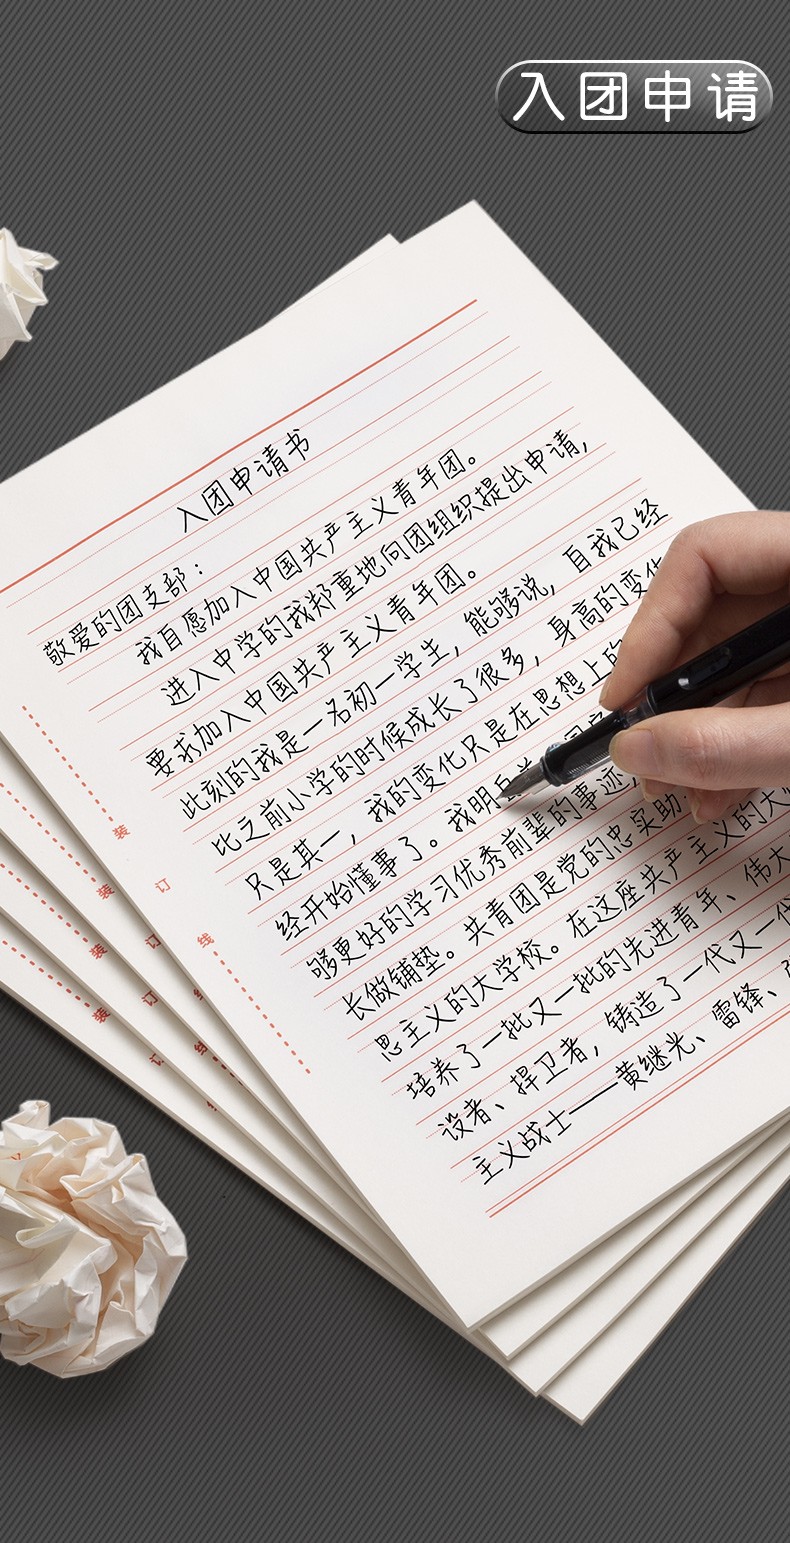 入团申请
入团申请书
敬爱的团支部：
我自愿加入中国共产主义青年团。
进入中学的我郑重地向团组织提出申请，
要求加入中国共产主义青年团。
此刻的我是一名初一学生，能够说，自我已经
比之前小学的时候成长了很多，身高的变化
只是其一，我的变化只是在思想上的
经开始懂事了。我明白
够更好的学习优秀前辈的事迹，
长做铺垫。共青团是党的忠实助
思主义的大学校。在这座共产主义的大
培养了一批又一批的先进青年、伟大
设者、捍卫者，铸造了一代又一代
主义战士——黄继光、雷锋、
装
订
线
装
订
装
订
装
订